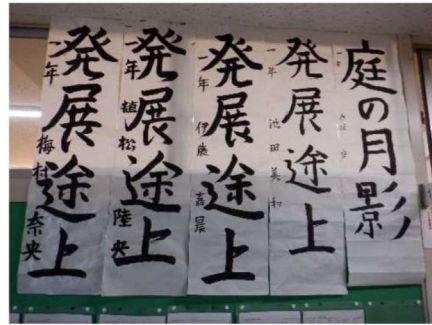 庭の月影
一年
発展途上
一年 池田美和
発展途上
一年 伊藤
発展途上
一年 植松 陸央
発展途上
一年 梅村 奈央